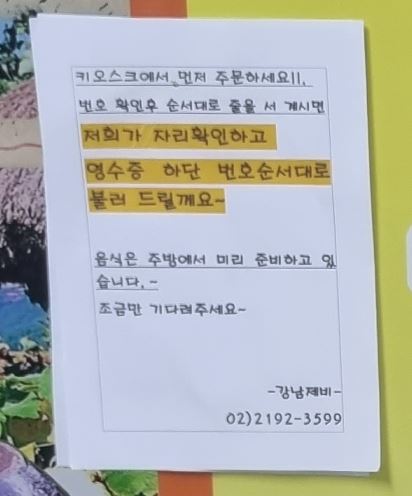 키오스크에서 먼저 주문하세요!!.
번호 확인후 순서대로 줄을 서 계시면
저희가 자리확인하고
영수증 하단 번호순서대로
불러 드릴께요~
음식은 주방에서 미리 준비하고 있
습니다. ~
조금만 기다려주세요~
-강남제비-
02)2192-3599